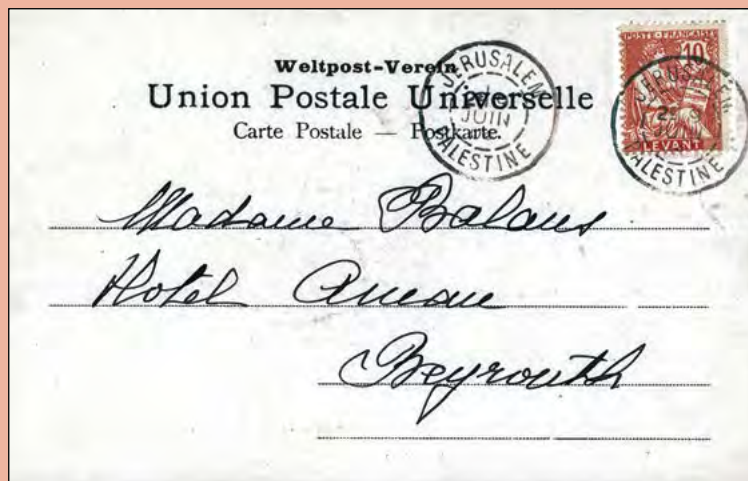 Weltpost-Verein
Union Postale Universelle
Carte Postale — Postkarte.
JERUSALEM
JUIN
PALESTINE
POSTE FRANÇAISE
10
LEVANT
JERUSALEM
2
JUIN
PALESTINE
Madame
Hotel
Beyrouth